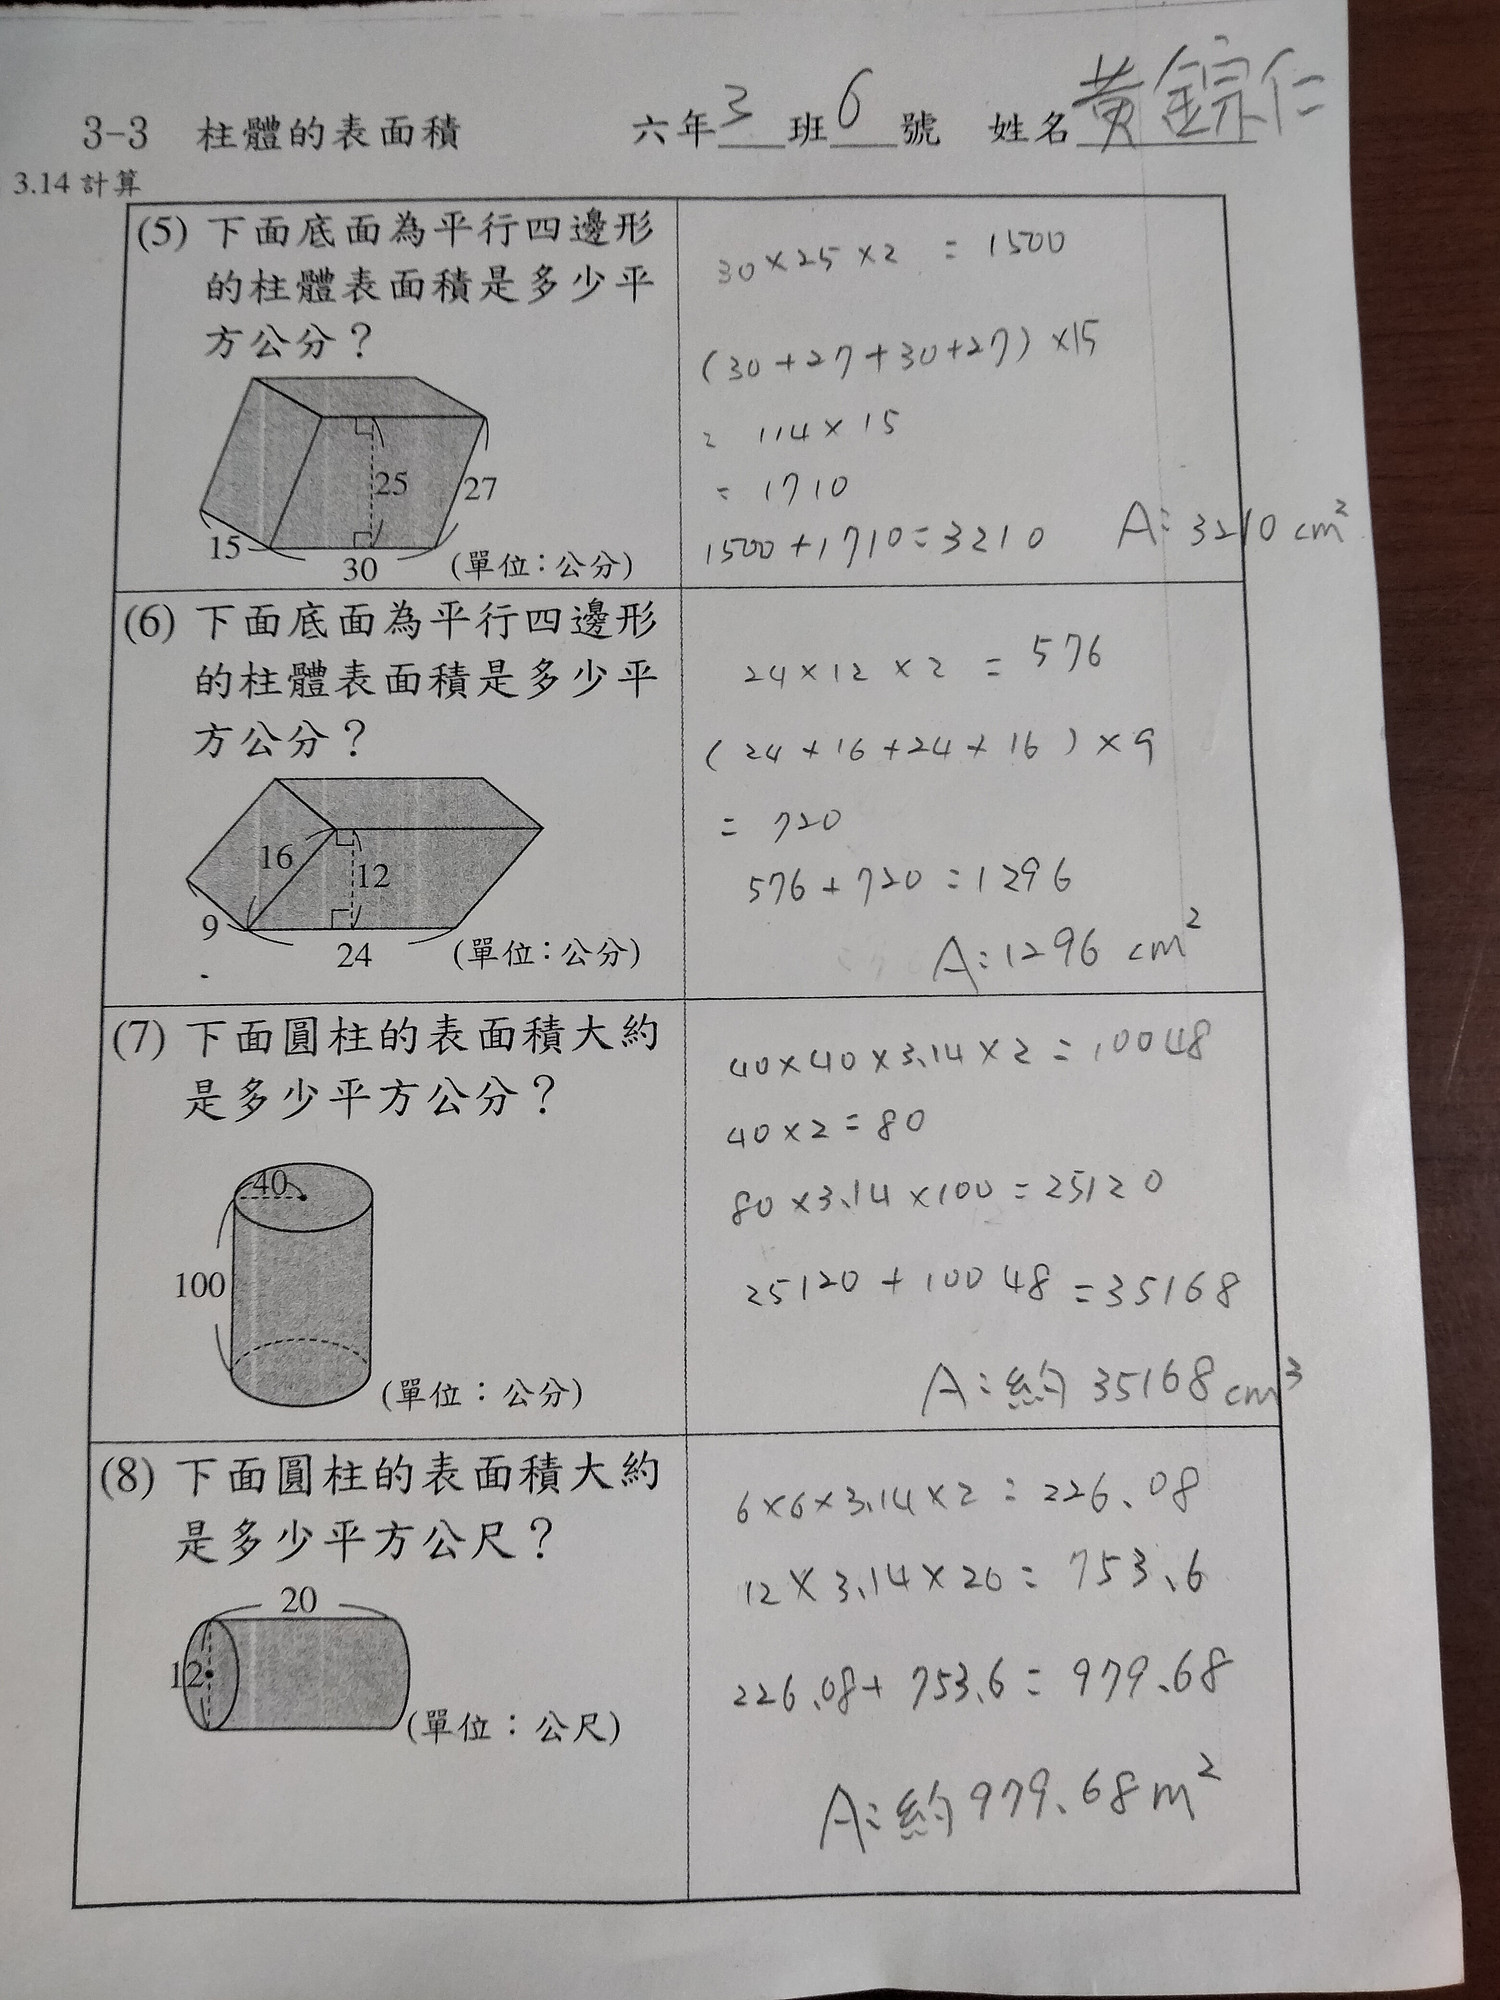 3-3 柱體的表面積 六年3班6號 姓名黃錝仁
3.14 計算
(5) 下面底面為平行四邊形
的柱體表面積是多少平
方公分？
25
27
15
30
(單位：公分)
30×25×2 = 1500
(30+27+30+27)×15
= 114×15
= 1710
1500+1710=3210 A：3210 cm²
(6) 下面底面為平行四邊形
的柱體表面積是多少平
方公分？
16
12
9
24
(單位：公分)
24×12×2 = 576
(24+16+24+16)×9
= 720
576+720=1296
A：1296 cm²
(7) 下面圓柱的表面積大約
是多少平方公分？
40
100
(單位：公分)
40×40×3.14×2=10048
40×2=80
80×3.14×100=25120
25120+10048=35168
A：約 35168 cm³
(8) 下面圓柱的表面積大約
是多少平方公尺？
20
12
(單位：公尺)
6×6×3.14×2=226.08
12×3.14×20=753.6
226.08+753.6=979.68
A：約979.68m²